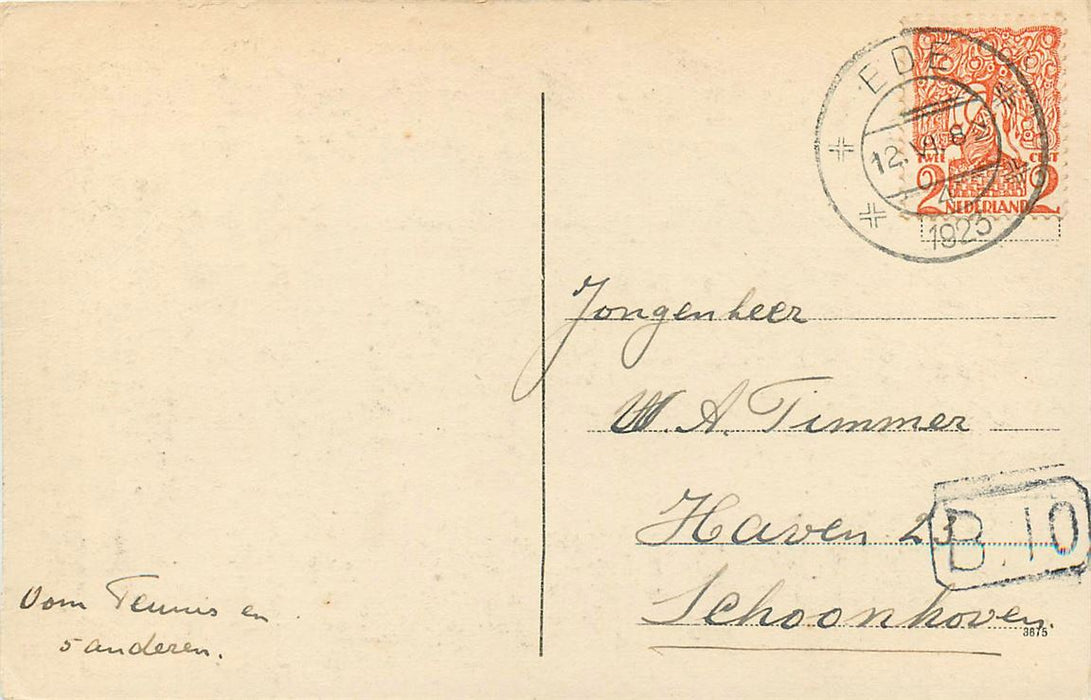 EDE
12.VII.8
4
1923
TWEE CENT
2 NEDERLAND 2
Jongenheer
W. A. Timmer
Haven 23
B. 10
Schoonhoven.
3675
Oom Teunis en
5 anderen.